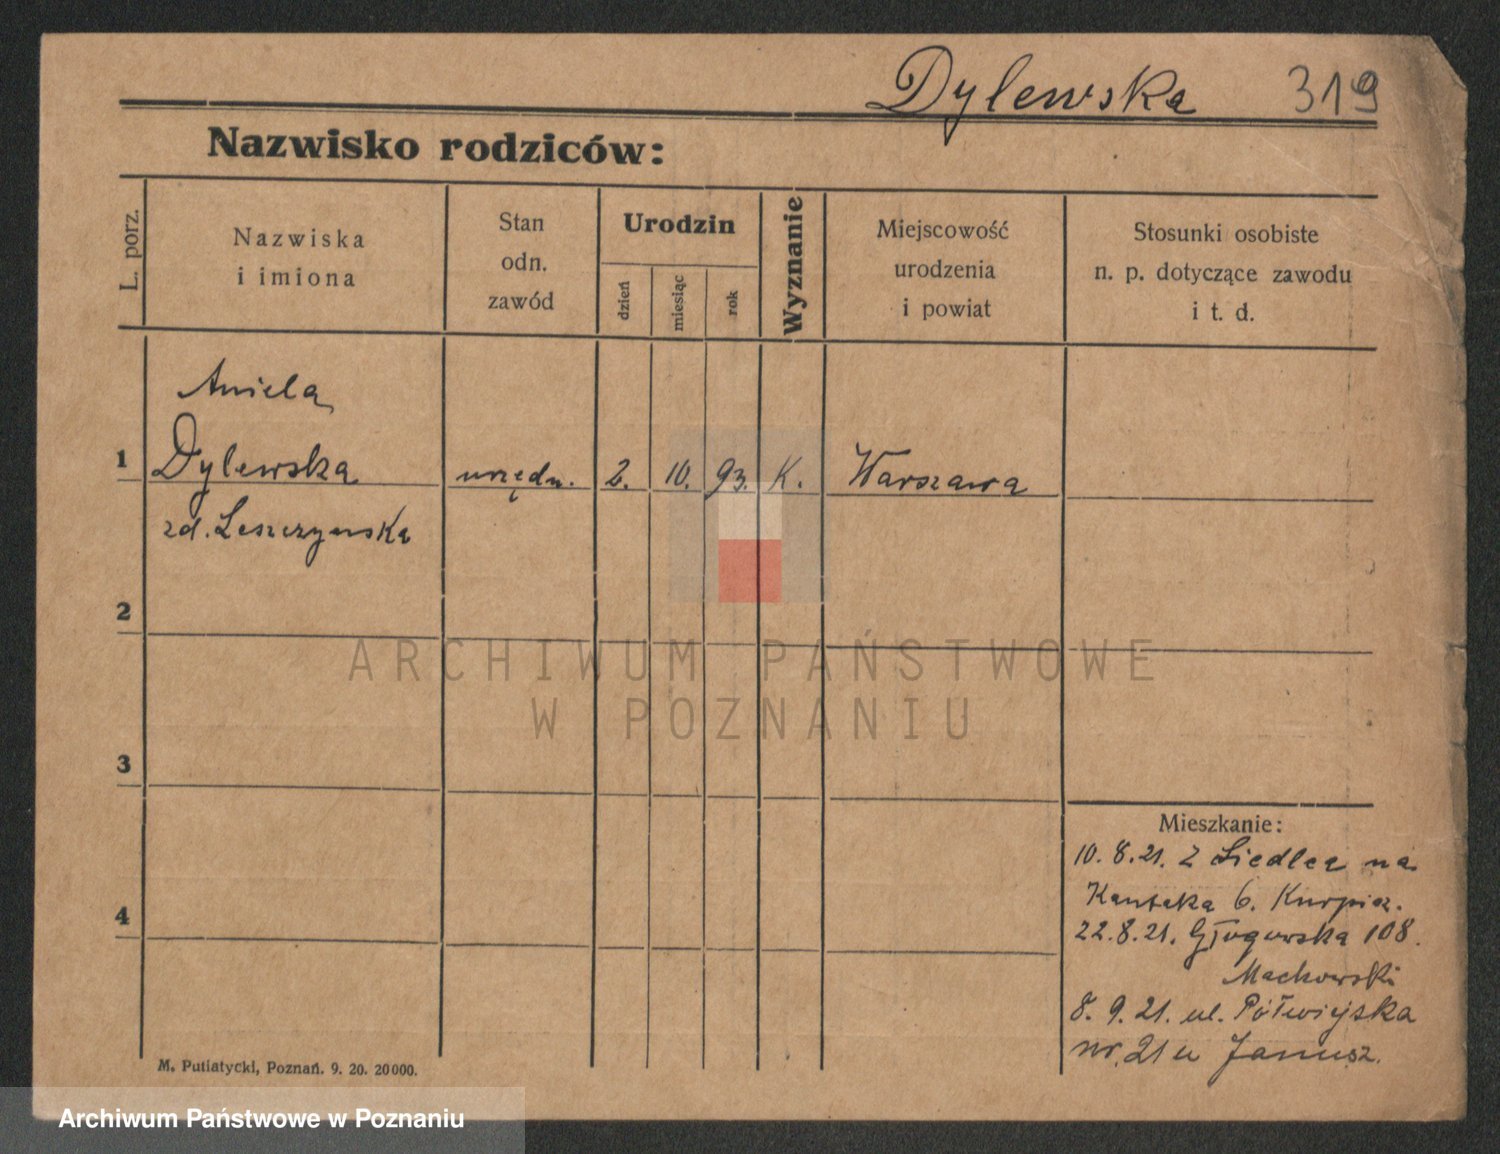 Dylewska 319
Nazwisko rodziców:
L. porz.
Nazwiska
i imiona
Stan
odn.
zawód
Urodzin
dzień
miesiąc
rok
Wyznanie
Miejscowość
urodzenia
i powiat
Stosunki osobiste
n. p. dotyczące zawodu
i t. d.
Aniela
1 Dylewska urzędn. 2. 10. 93. K. Warszawa
zd. Leszczyńska
2
ARCHIWUM PAŃSTWOWE
W POZNANIU
3
4
Mieszkanie:
10. 8. 21. z Siedlca na
Kantaka 6. Kurpisz.
22. 8. 21. Głogowska 108.
Mackowski
8. 9. 21. ul. Półwiejska
nr. 21 u Janusz.
M. Putiatycki, Poznań. 9. 20. 20000.
Archiwum Państwowe w Poznaniu